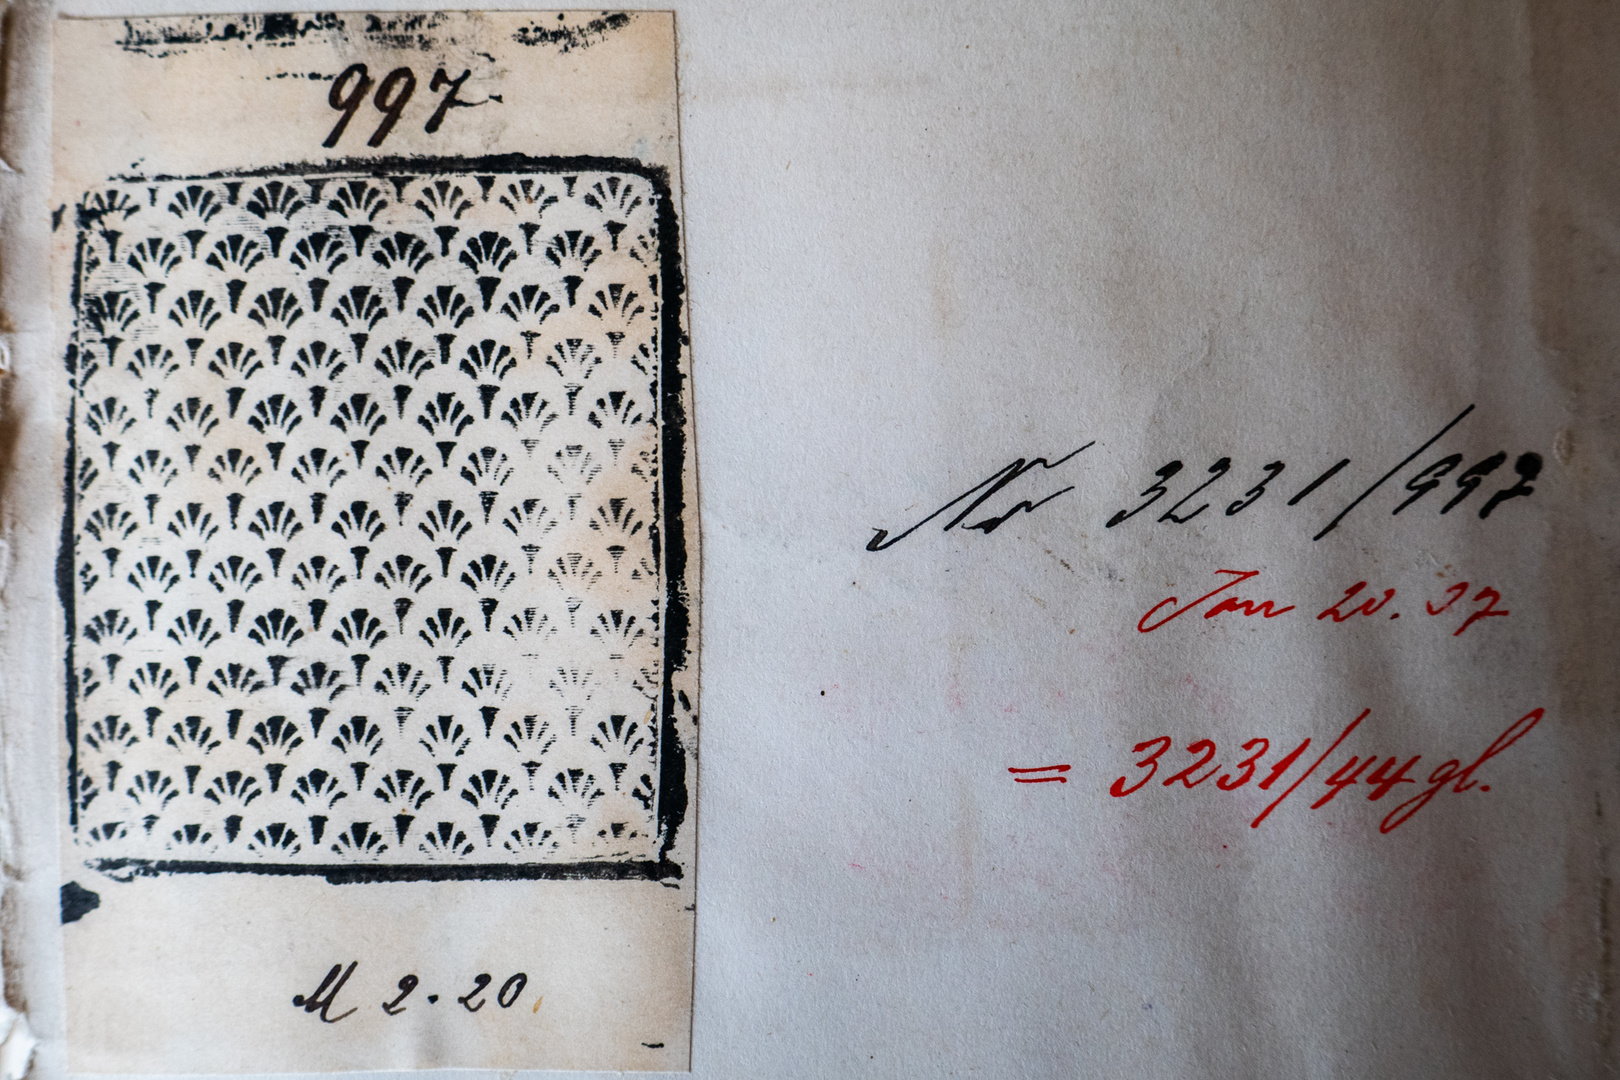 997.
M 2.20
Nr 3231/997
Jan 20. 37
= 3231/44 gl.